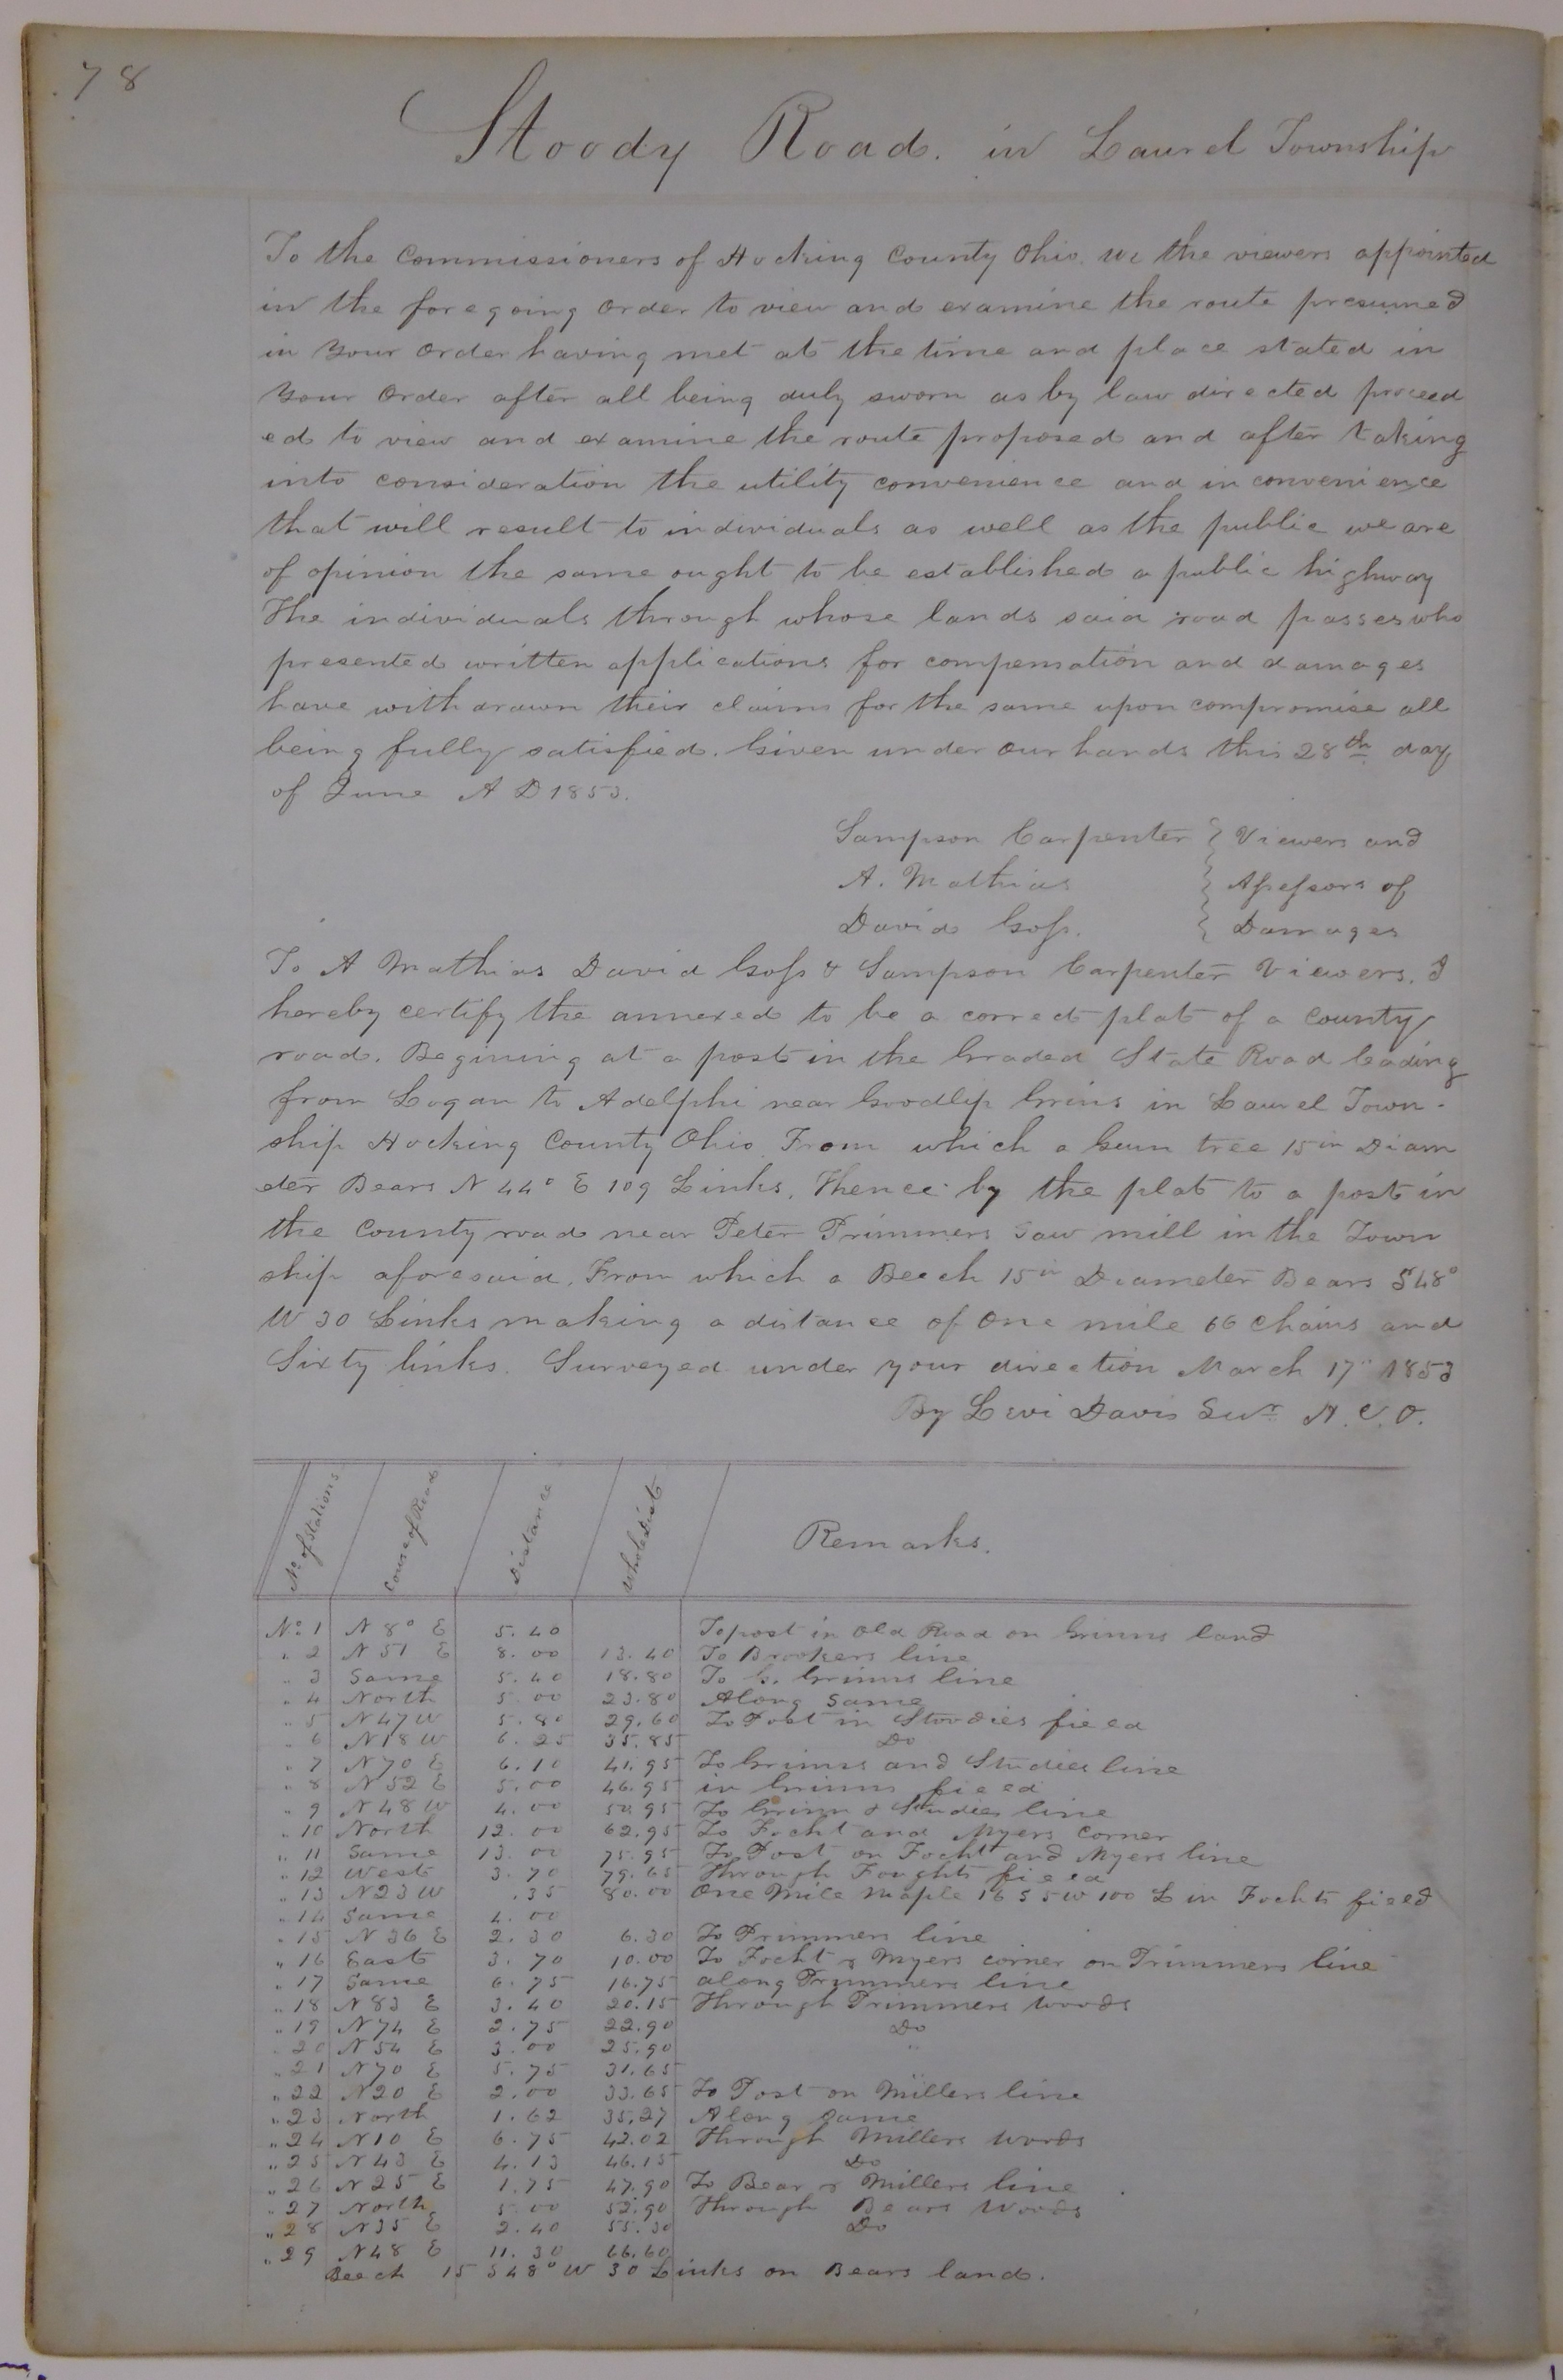 78
Stoody Road. in Laurel Township
To the Commissioners of Hocking County Ohio. We the viewers appointed
in the foregoing order to view and examine the route presumed
in your order having met at the time and place stated in
your order after all being duly sworn as by law directed proceed
ed to view and examine the route proposed and after taking
into consideration the utility convenience and inconvenience
that will result to individuals as well as the public we are
of opinion the same ought to be established a public highway
The individuals through whose lands said road passes who
presented written applications for compensation and damages
have withdrawn their claims for the same upon compromise all
being fully satisfied. Given under our hands this 28th day
of June A D 1853.
Sampson Carpenter } Viewers and
A. Mathias } Assessors of
David Goss. } Damages
To A Mathias David Goss & Sampson Carpenter Viewers. I
hereby certify the annexed to be a correct plat of a County
road. Begining at a post in the Graded State Road leading
from Logan to Adelphi near Goodlip Grims in Laurel Town-
ship Hocking County Ohio From which a Gum tree 15 in Diam
eter Bears N 44° E 109 Links. Thence by the plat to a post in
the County road near Peter Trimmers Saw mill in the Town
ship aforesaid. From which a Beech 15 in Diameter Bears S 48°
W 30 Links making a distance of One mile 66 chains and
Sixty links. Surveyed under your direction March 17" 1853
By Levi Davis Sur. H. C. O.
No of Stations Course of Road Distance Whole Dist Remarks.
No. 1 N 8° E 5.40 To post in Old Road on Grimms land
" 2 N 51 E 8.00 13.40 To Brookers line
" 3 Same 5.40 18.80 To G. Grimms line
" 4 North 5.00 23.80 Along Same
" 5 N 47 W 5.80 29.60 To Post in Stoodies field
" 6 N 18 W 6.25 35.85 Do
" 7 N 70 E 6.10 41.95 To Grimms and Studies line
" 8 N 52 E 5.00 46.95 in Grimms field
" 9 N 48 W 4.00 50.95 To Grimm & Studies line
" 10 North 12.00 62.95 To Focht and Myers Corner
" 11 Same 13.00 75.95 To Post on Focht and Myers line
" 12 West 3.70 79.65 Through Foughts field
" 13 N 23 W .35 80.00 One Mile Maple 16 S 5 W 100 L in Fochts field
" 14 Same 4.00
" 15 N 36 E 2.30 6.30 To Trimmers line
" 16 East 3.70 10.00 To Focht & Myers corner on Trimmers line
" 17 Same 6.75 16.75 along Trimmers line
" 18 N 83 E 3.40 20.15 Through Trimmers woods
" 19 N 74 E 2.75 22.90 Do
" 20 N 54 E 3.00 25.90 "
" 21 N 70 E 5.75 31.65
" 22 N 20 E 2.00 33.65 To Post on Millers line
" 23 North 1.62 35.27 Along Same
" 24 N 10 E 6.75 42.02 Through Millers woods
" 25 N 43 E 4.13 46.15 Do
" 26 N 25 E 1.75 47.90 To Bear & Millers line
" 27 North 5.00 52.90 Through Bears Woods
" 28 N 35 E 2.40 55.30 Do
" 29 N 48 E 11.30 66.60
Beech 15 S 48° W 30 Links on Bears land.